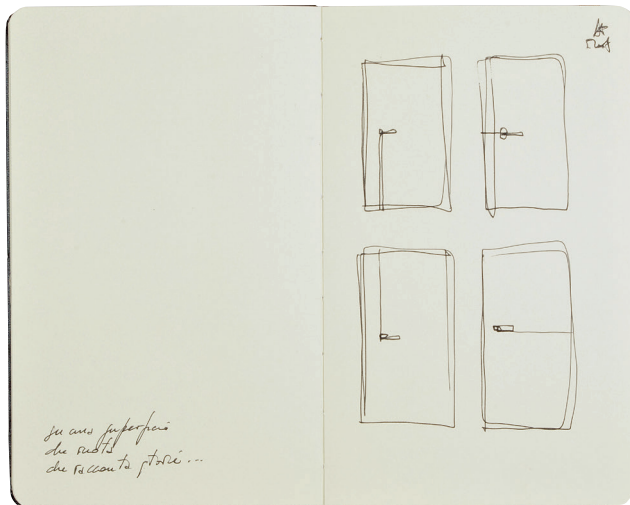 su una superficie
che ruota
che racconta storie...